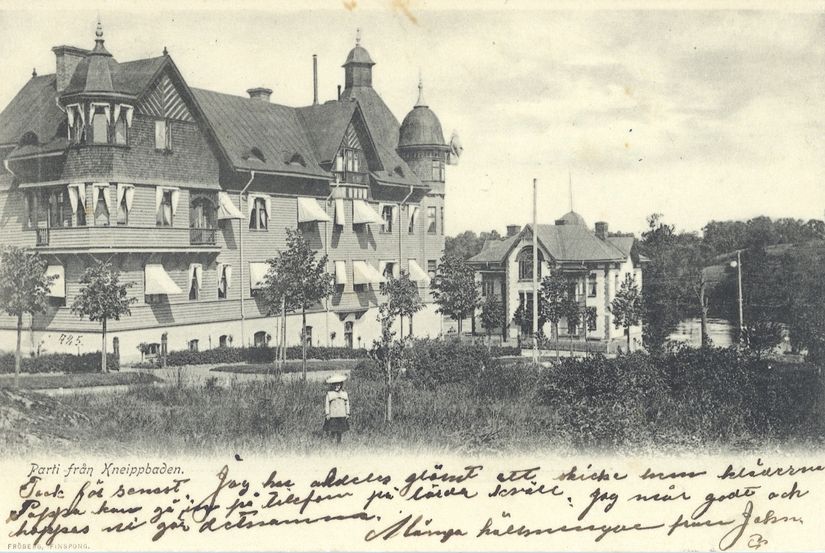 425.
Parti från Kneippbaden.
Tack för senast. Jag har aldeles glömt att skicke hem kläderne
Pappa kan gå in på telefom på lörda kväll. jag mår godt och
hoppas ni gör detsamma. Många hälsningar från John
FRÖBERG, FINSPONG.